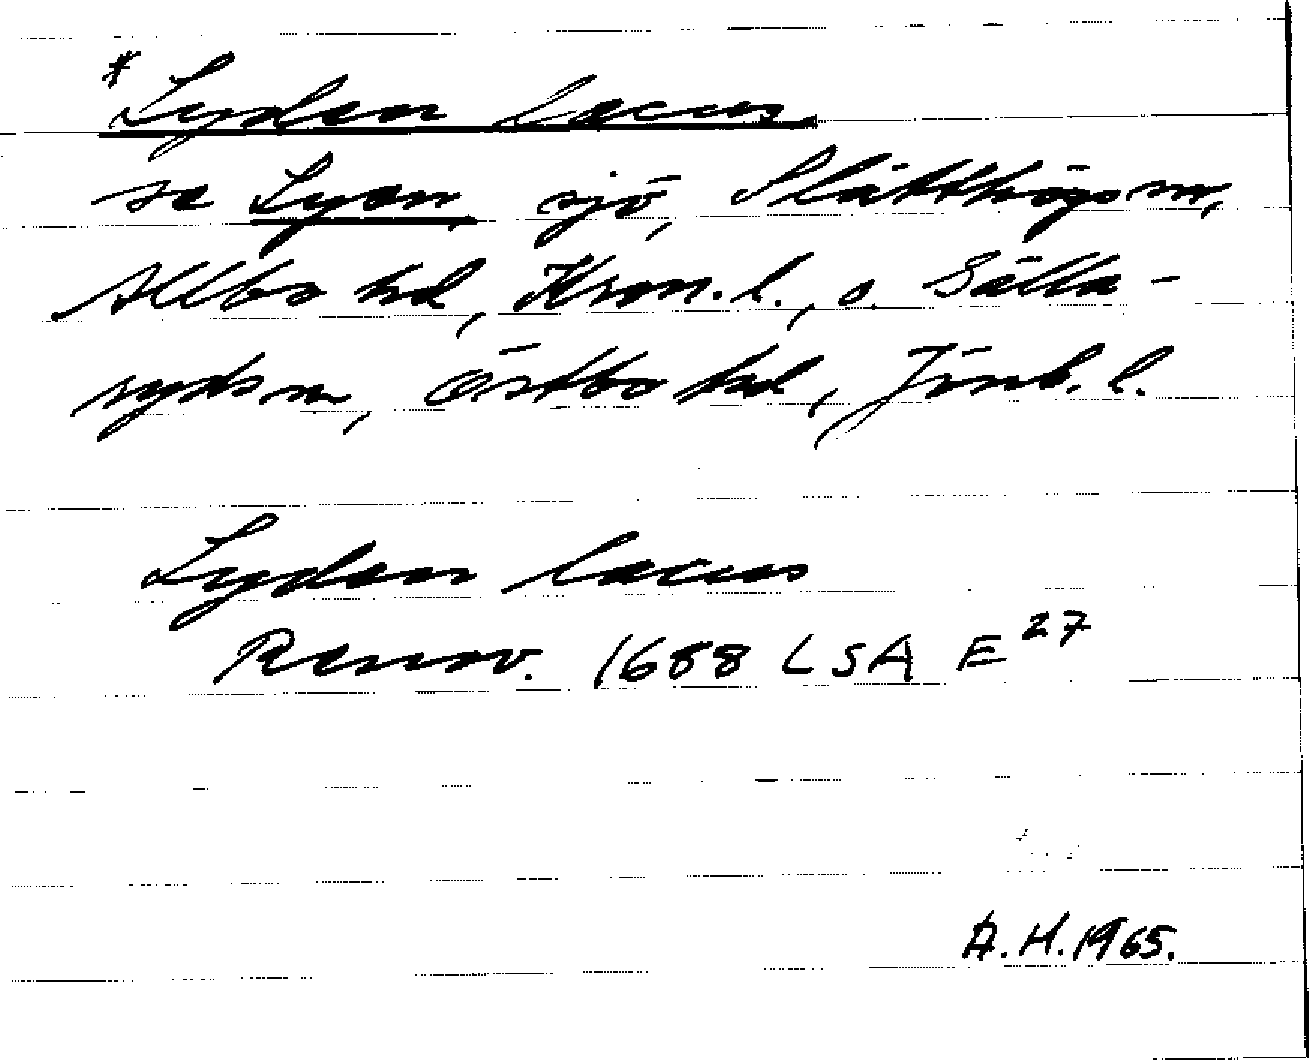 *Lyden lacus
se Lyen, sjö, Slätthögs sn,
Allbo hd, Kron. l., o. Sälla-
ryds sn, Östbo hd, Jönk. l.
Lyden lacus
Renov. 1688 LSA E 27
A.H. 1965.